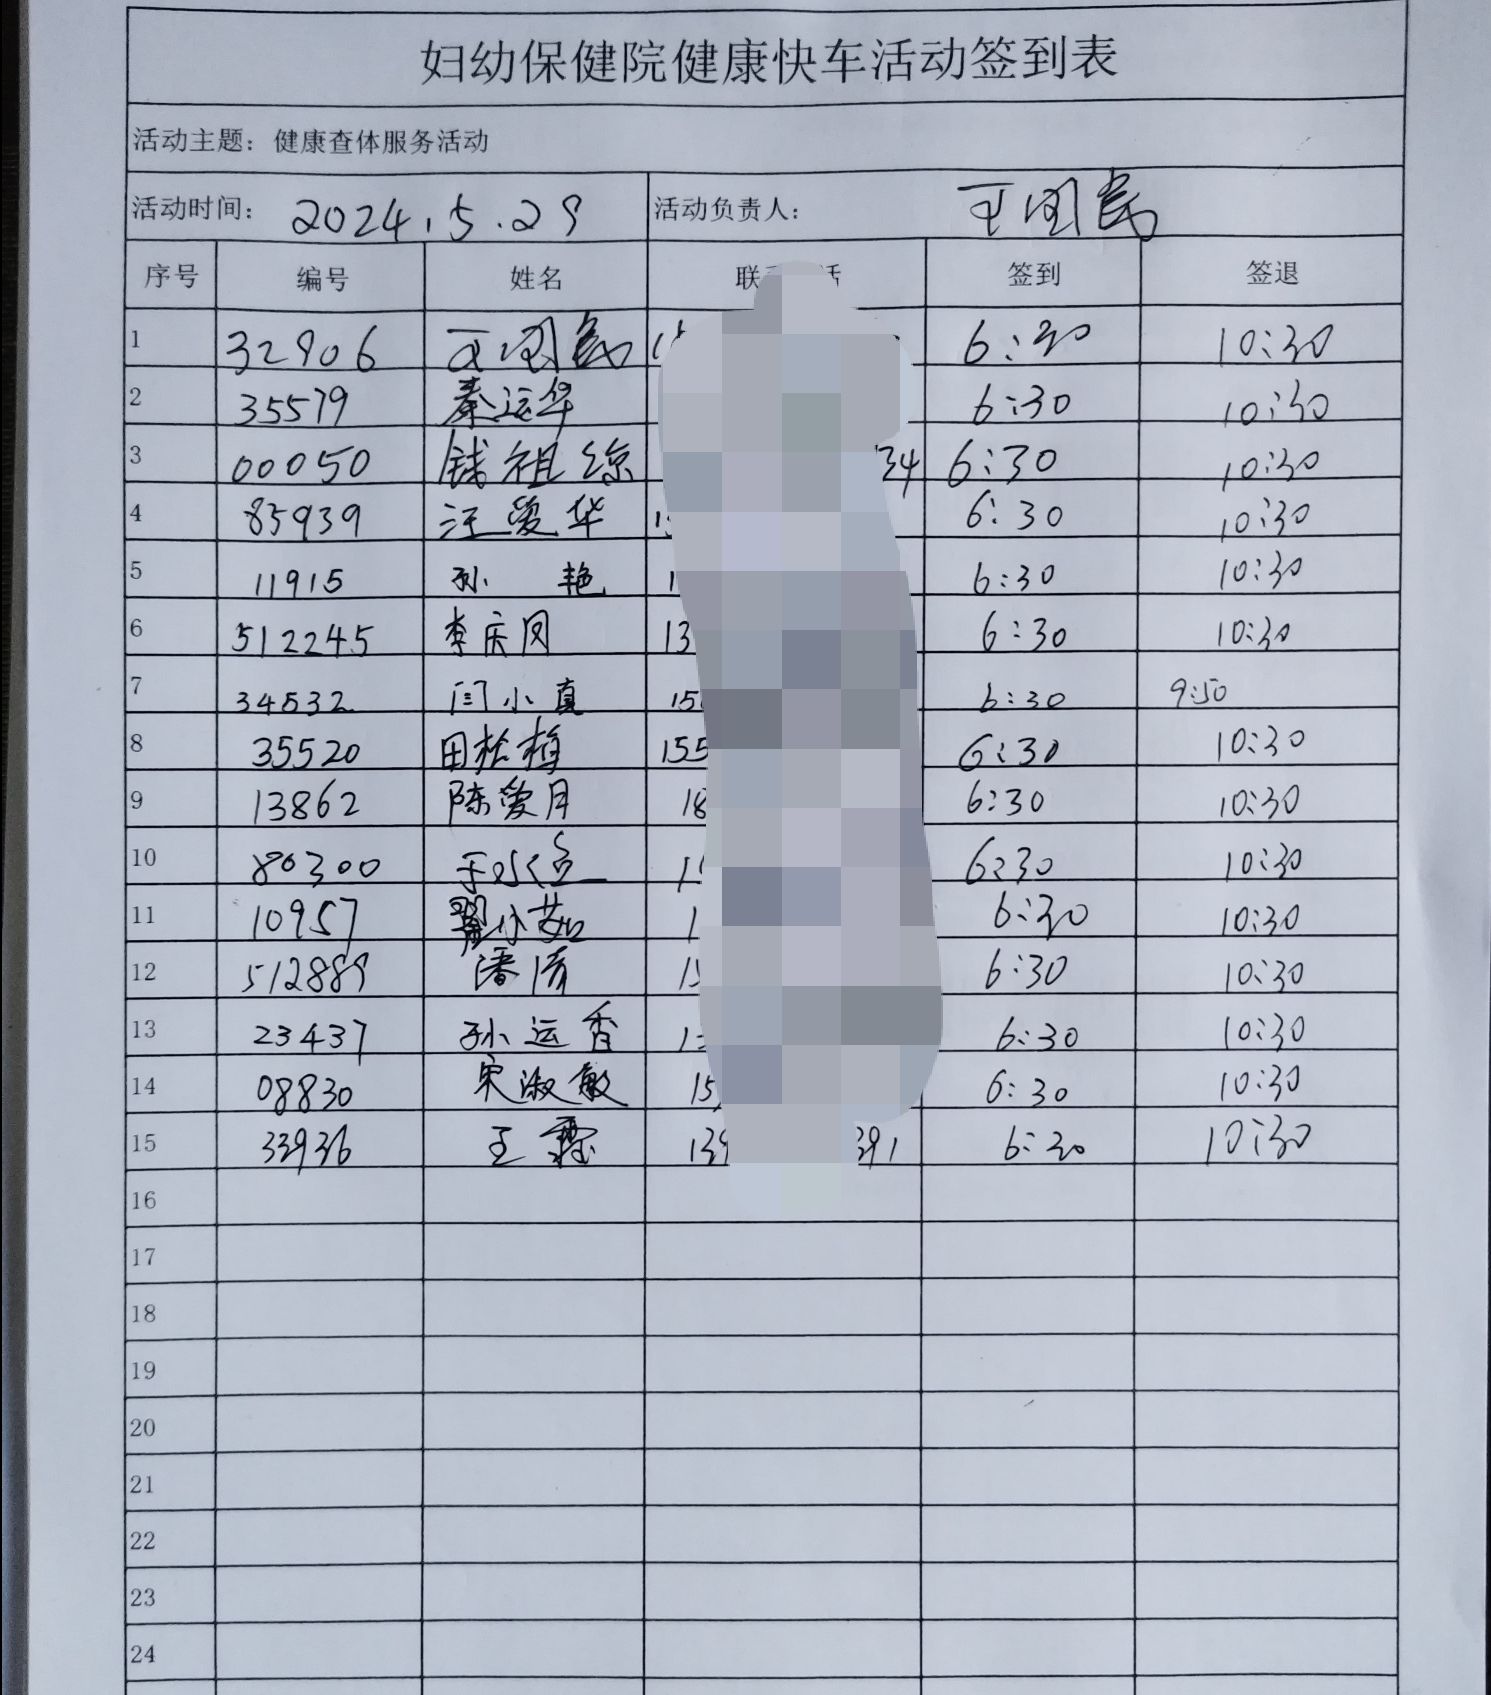 妇幼保健院健康快车活动签到表
活动主题：健康查体服务活动
活动时间： 2024.5.29 活动负责人： 王国民
序号 编号 姓名 联 话 签到 签退
1 32906 王国民 6:30 10:30
2 35579 秦运华 6:30 10:30
3 00050 钱祖琼 34 6:30 10:30
4 85939 汪爱华 6:30 10:30
5 11915 孙 艳 6:30 10:30
6 512245 李庆凤 13 6:30 10:30
7 34532 闫小真 15 6:30 9:50
8 35520 田松梅 155 6:30 10:30
9 13862 陈爱月 18 6:30 10:30
10 80300 6:30 10:30
11 10957 翟小茹 1 6:30 10:30
12 512889 潘倩 6:30 10:30
13 23437 孙运香 6:30 10:30
14 08830 宋淑敏 15 6:30 10:30
15 33936 王霞 139 391 6:30 10:30
16
17
18
19
20
21
22
23
24